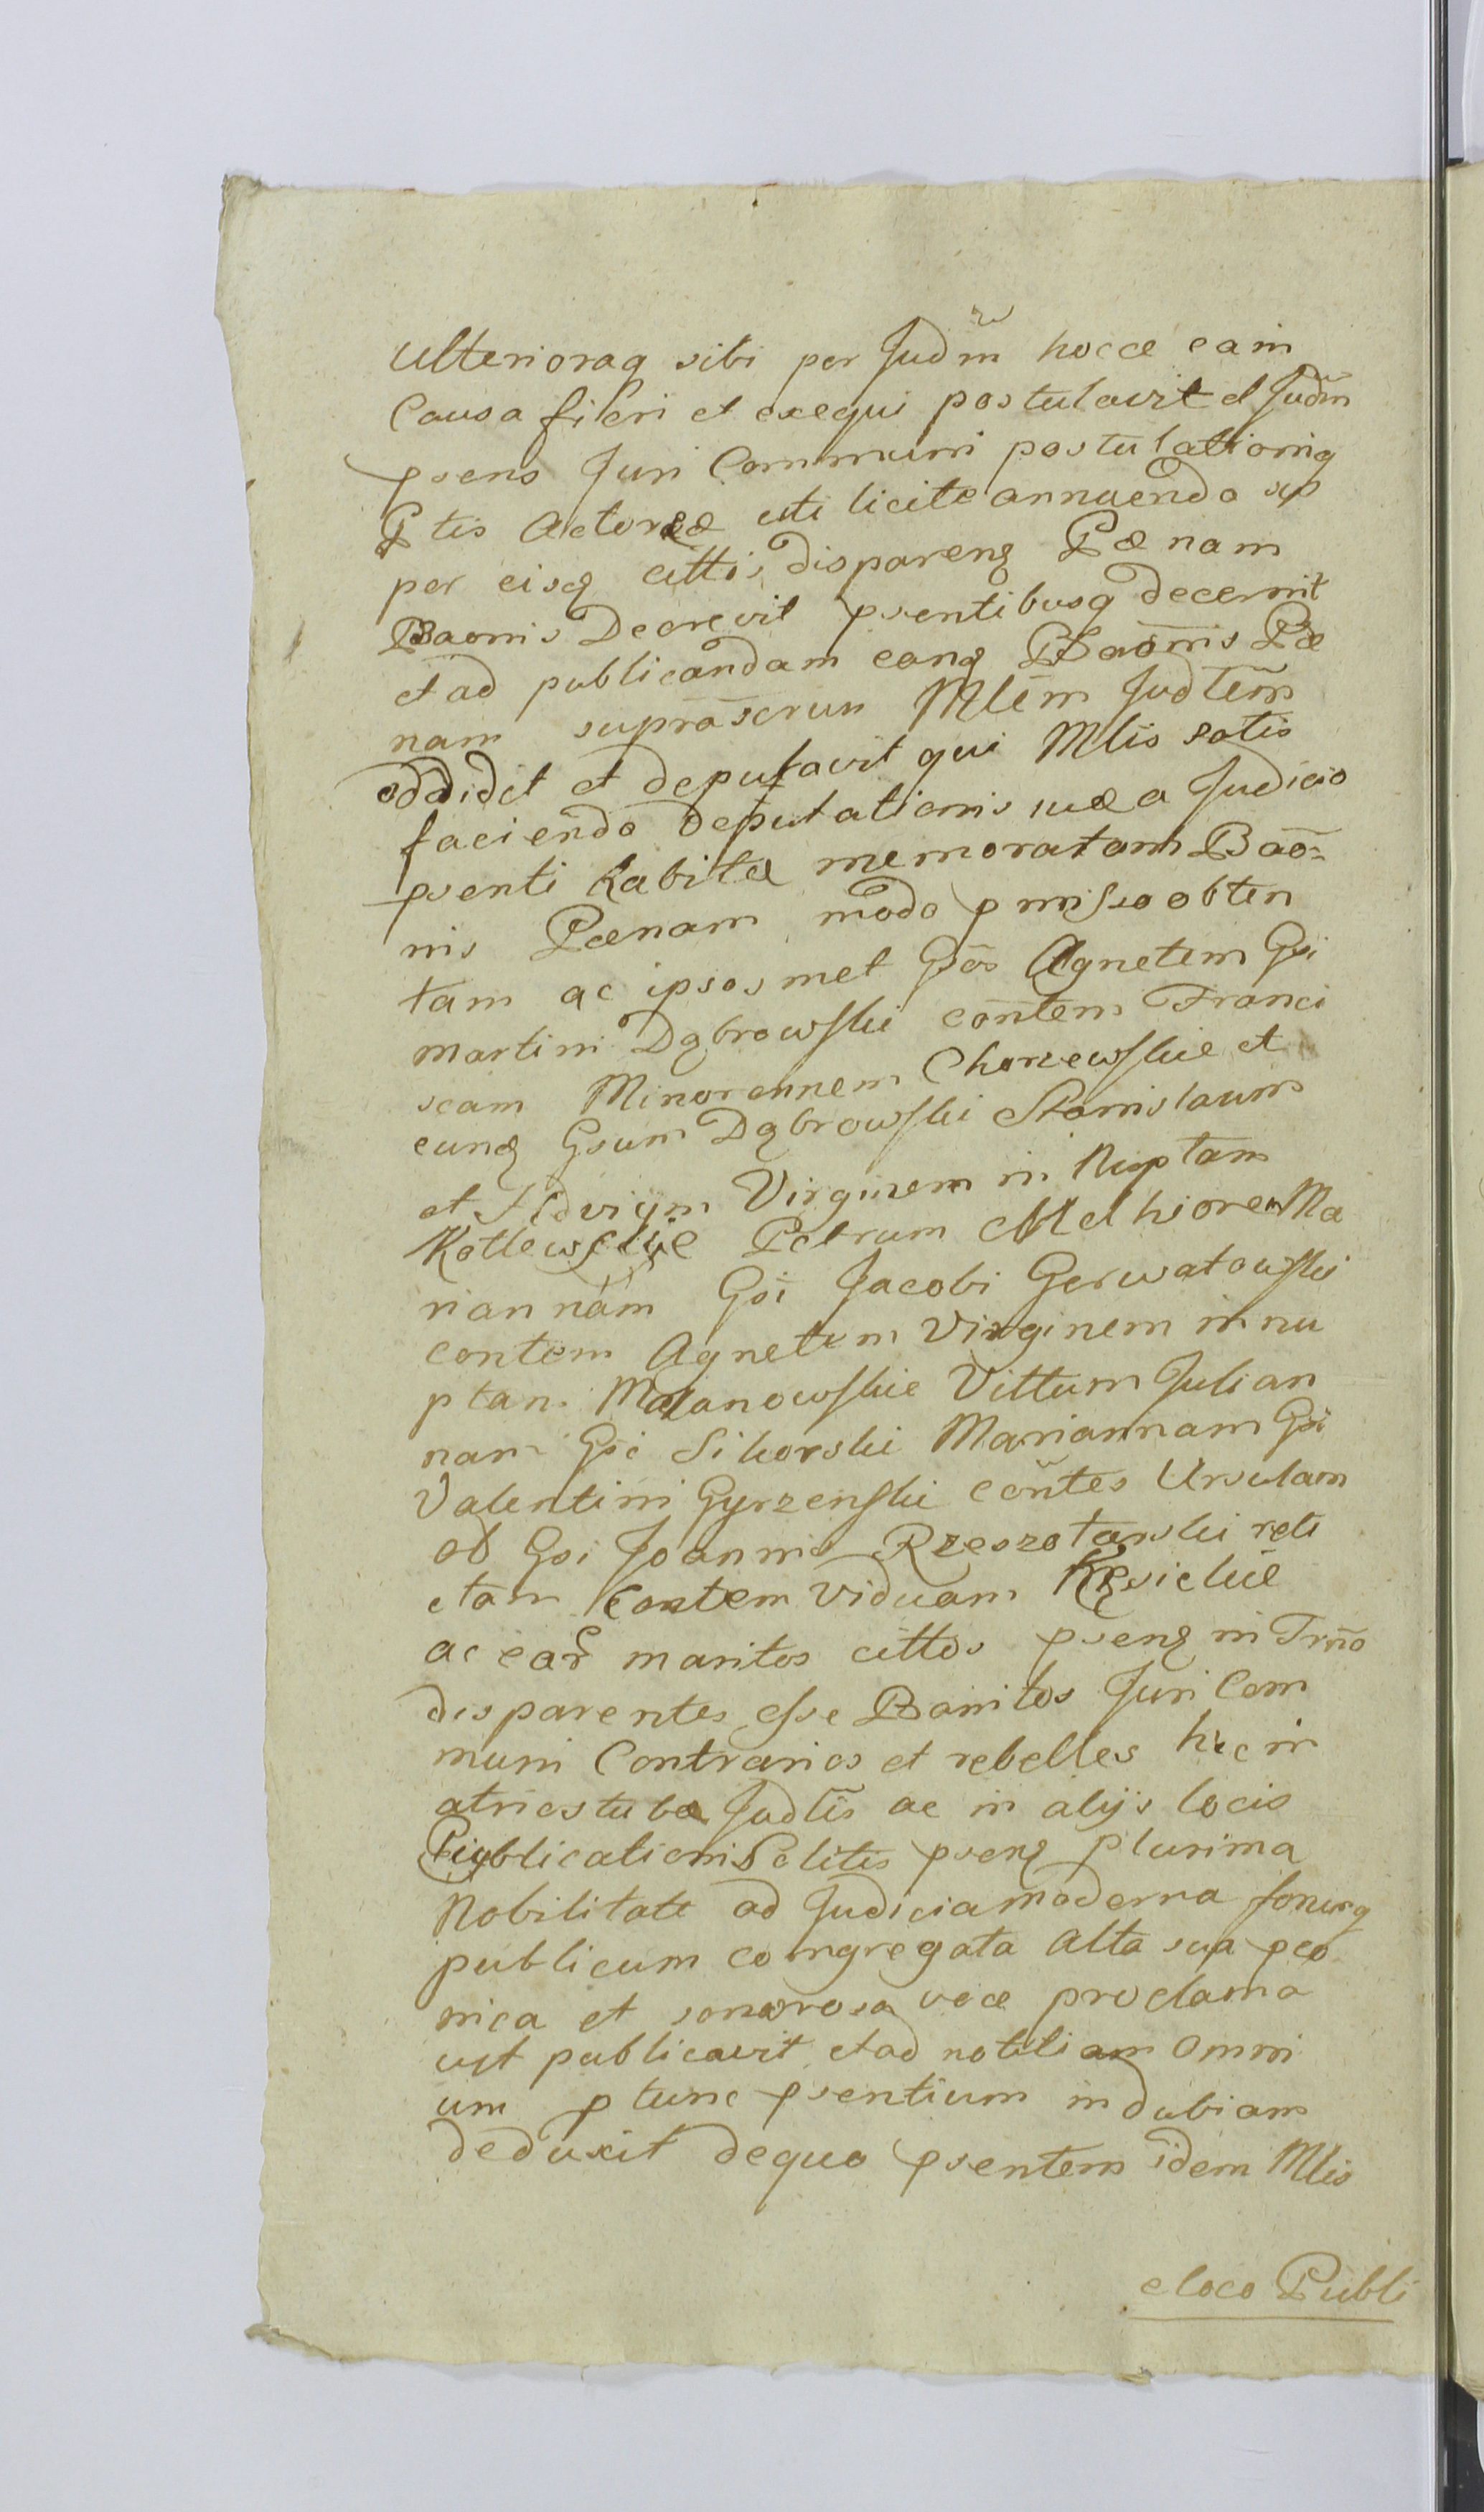 Ulterioraq sibi per Judm̃ hocce eam
Causa fieri et exequi postulavit et Judm̃
psens Juri Communi postulationiq
Ptis Actoreæ uti licite annuendo sup
per eisq cittis dispareng Pœnam
Baonis Decrevit psentibusq decernit
et ad publicandam eang Baōnis Pœ
nam suprascrun Mlēm Judtēm
addidit et deputavit qui Mlis satis
faciendo deputationis suæ a Judicio
psenti habitæ memoratam Baō=
nis Pœnam modo pmisso obten
tam ac ipsos met Gsōs Agnetem Gsi
Martini Dąbrowski cōntem Franci
scam Minorennem Chorzewskie et
eung Gsum Dąbrowski Stanislaum
et Hedvigm Virginem in Nuptam
Kotlewskie Petrum Melhiorem Ma
riannam Gsi Jacobi Gerwatowski
contem Agnetem Virginem innu
ptam Mojanowskie Vittum Julian
nam Gsi Sikorski Mariannam Gsi
Valentini Gyrzenski cōntes Ursulam
ob Gsi Joannis Rzeszotarski reli
ctam Contem Viduam Kęsickie
ac ear maritos cittos pseng in Trño
disparentes esse Banitos Juri Com
muni Contrarios et rebelles hic in
atrio stubæ Judtis ac in alijs locis
Publicationi Solitis pseng plurima
Nobilitate ad Judicia moderna forumq
publicum congregata Alta sua pco
nica et sonorosa voce proclama
vit publicavit et ad notitiam omni
um p tunc psentium indubiam
deduxit de quo psentem idem Mlis
e loco Publi